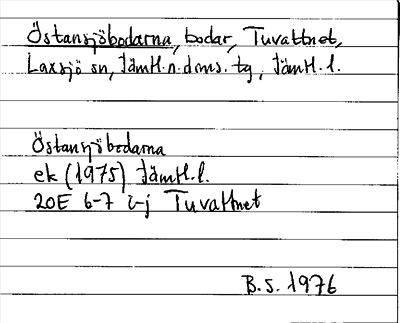 Östansjöbodarna, bodar, Tuvattnet,
Laxsjö sn, Jämtl.n.dms. tg, Jämtl. l.
Östansjöbodarna
ek (1975) Jämtl. l.
20E 6-7 i-j Tuvattnet
B.S. 1976